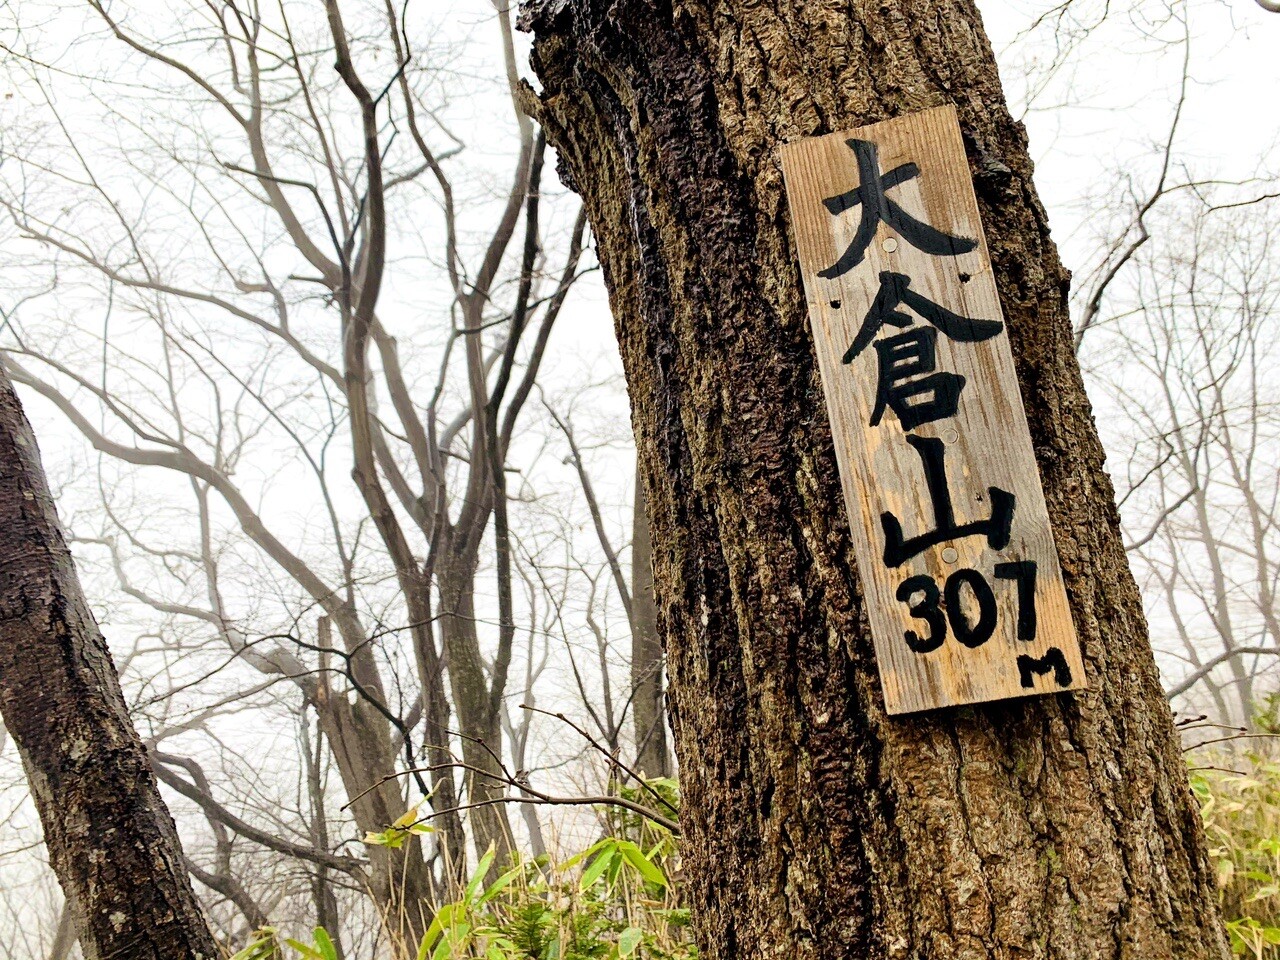 大倉山
307
M